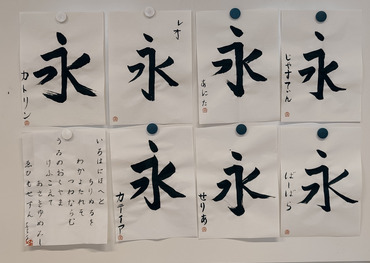 永
カトリン
永
レオ
永
あにた
永
じゃすてぃん
いろはにほへと
ちりぬるを
わかよたれそ
つねならむ
うゐのおくやま
けふこえて
あさきゆめみし
ゑひもせすん
永
カティア
永
せりあ
永
ばーばら